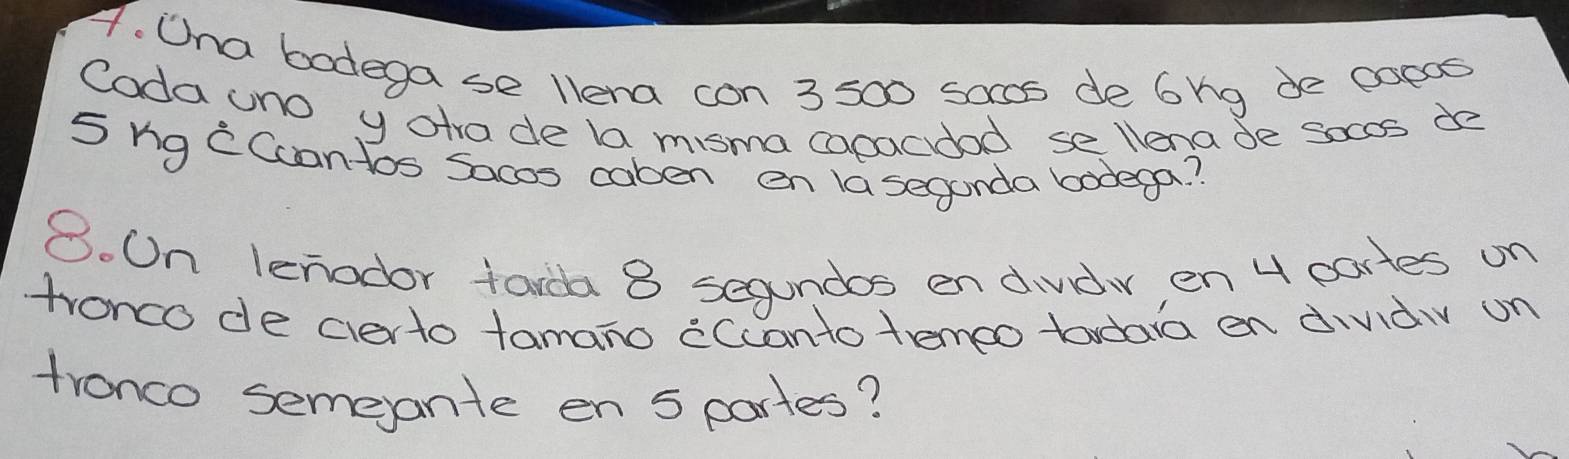 7. Una bodega se llena con 3500 sacos de 6kg de papas
Cada uno y otra de la misma capacidad se llena de sacos de
5 kg ¿Cuantos sacos caben en la segunda bodega?
8. Un leñador tarda 8 segundos en dividir en 4 partes un
tronco de cierto tamaño ¿Cuanto tiempo tardará en dividir un
tronco semejante en 5 partes?